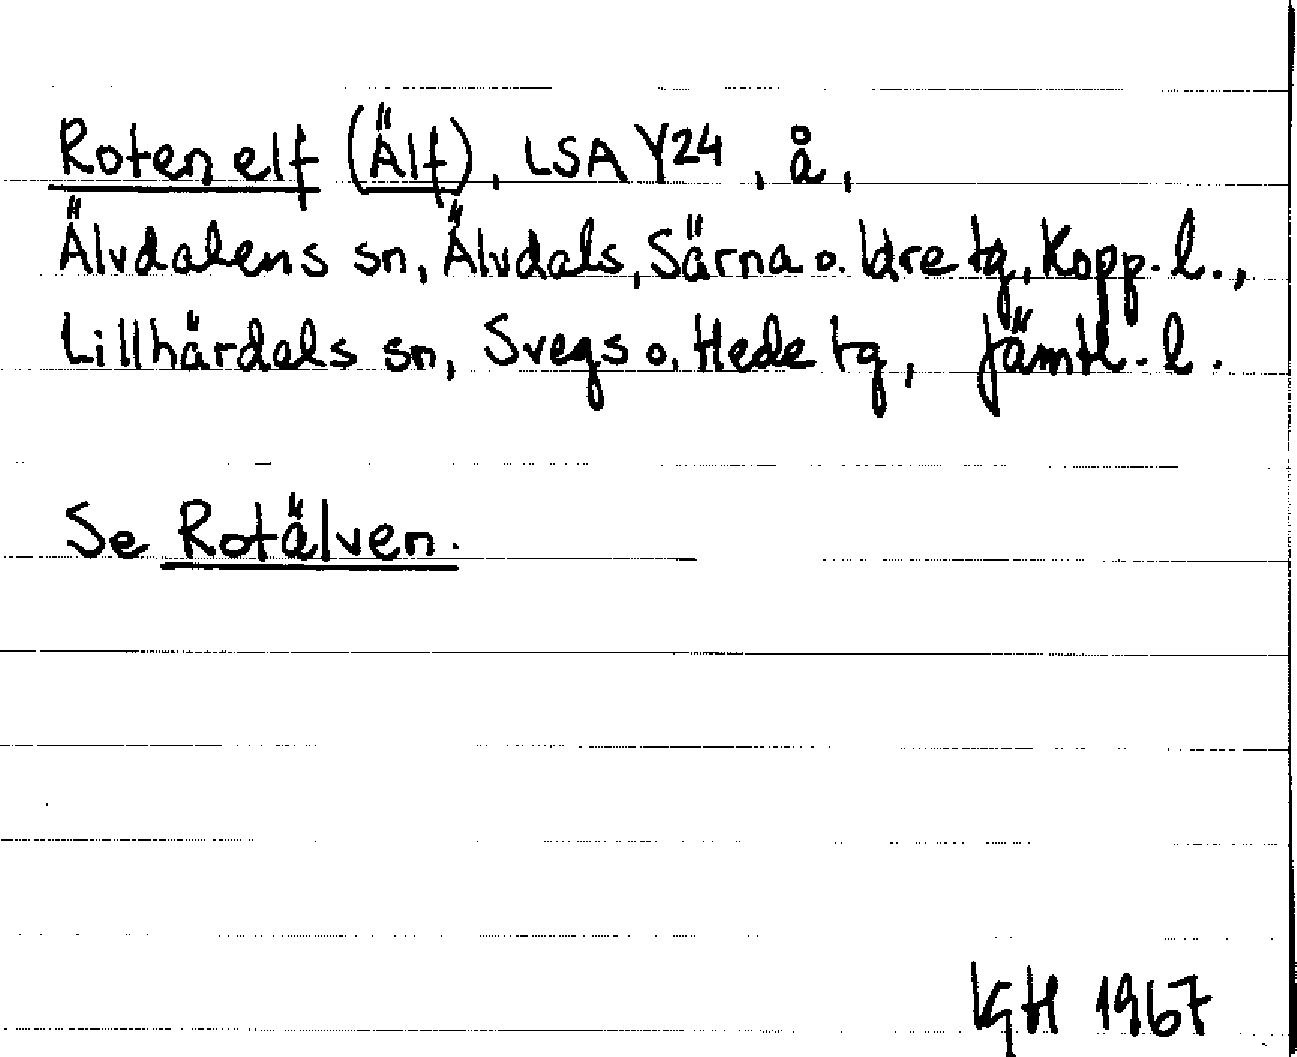 Roten elf (Älf), LSA Y24, å,
Älvdalens sn, Älvdals, Särna o. Idre tg, Kopp. l.,
Lillhärdals sn, Svegs o. Hede tg, Jämtl. l.
Se Rotälven.
KGH 1967